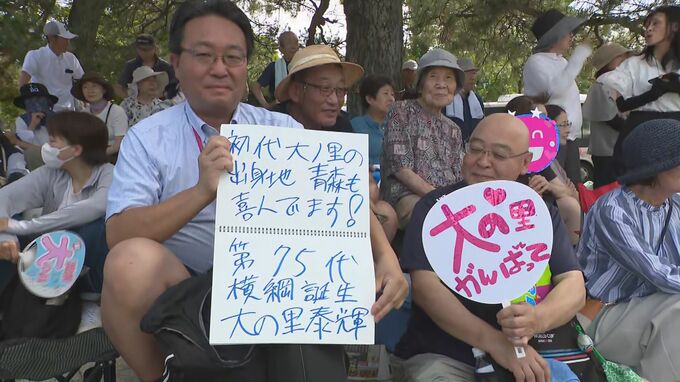 初代大ノ里の
出身地 青森も
喜んでます!
第75代
横綱誕生
大の里泰輝
大の里
がんばって
大の